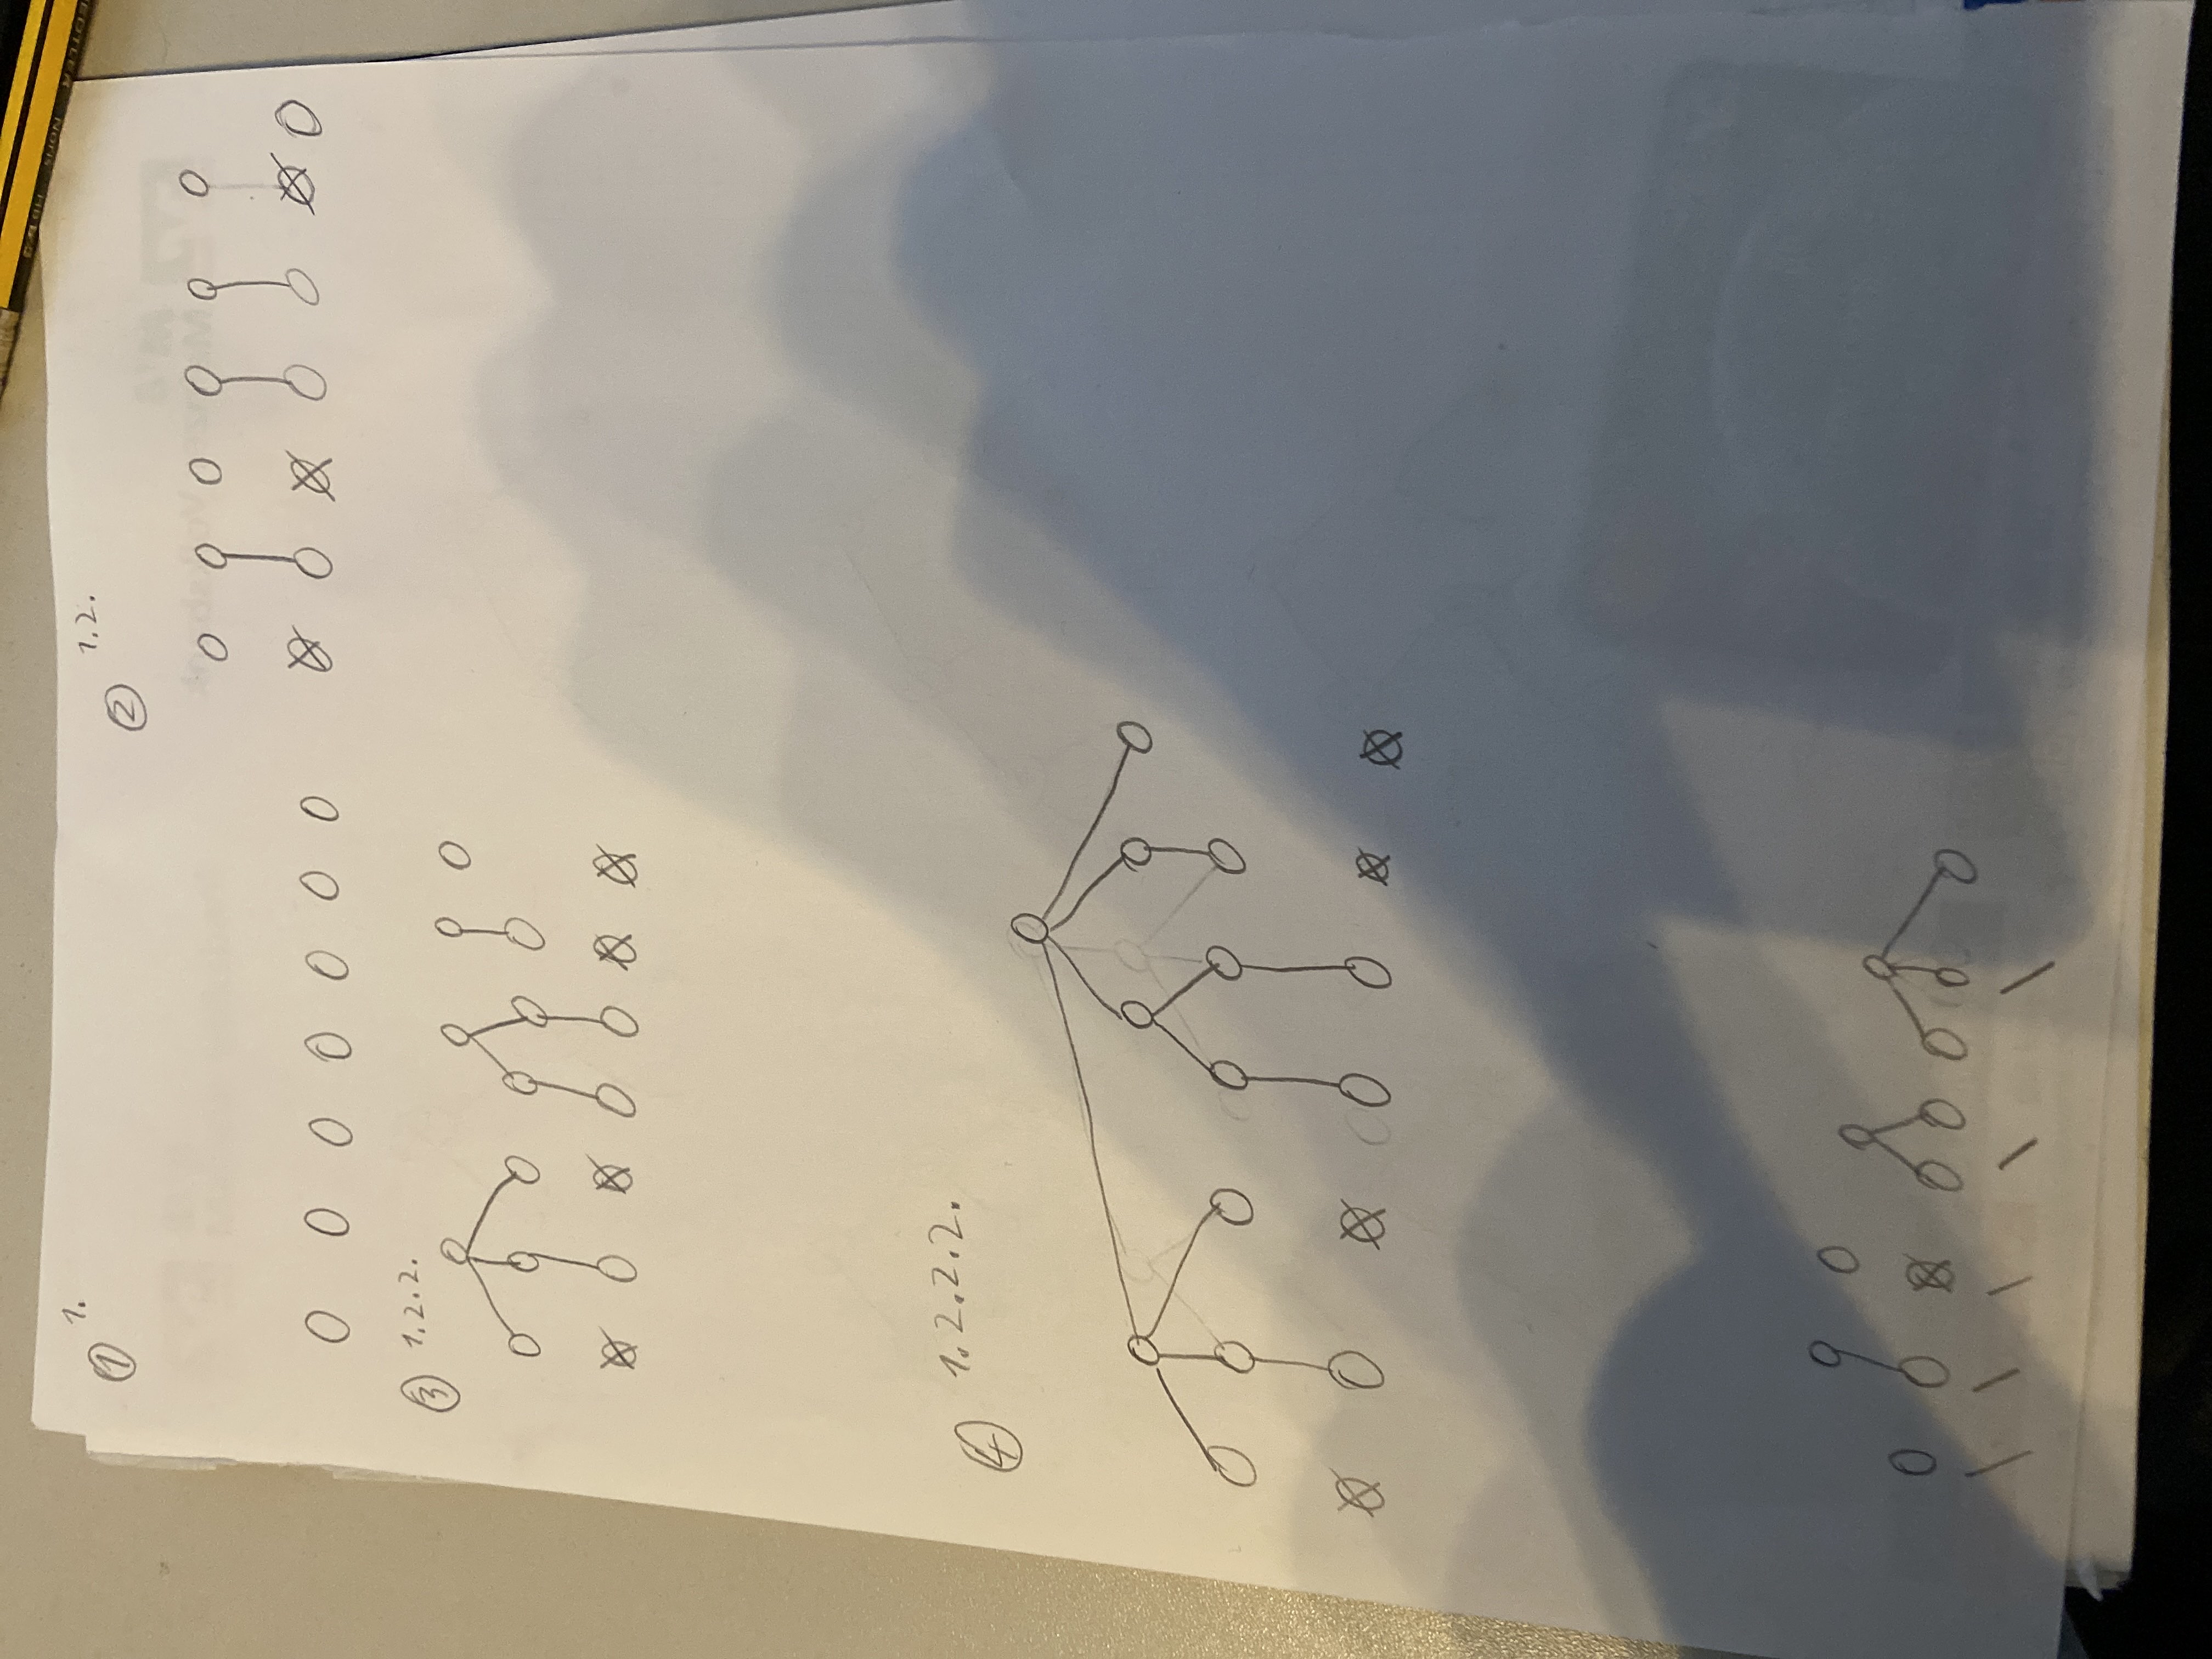 ① 1.
② 1.2.
③ 1.2.2.
④ 1.2.2.2.